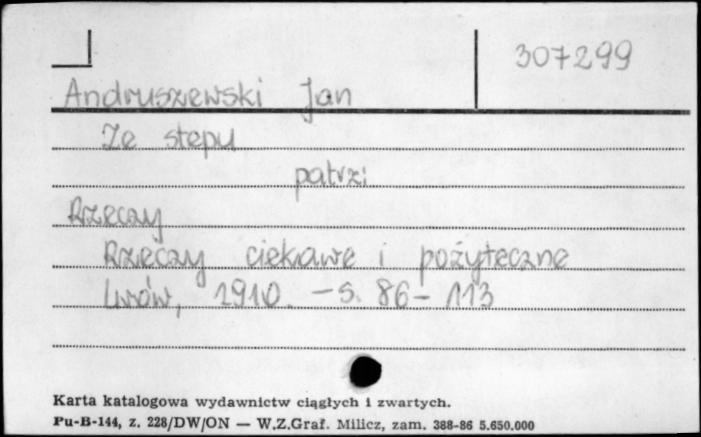 307299
Andruszewski Jan
Ze stepu
patrzi
Rzeczy
Rzeczy ciekawe i pożyteczne
Lwów, 1910. - s. 86- 113
Karta katalogowa wydawnictw ciągłych i zwartych.
Pu-B-144, z. 228/DW/ON — W.Z.Graf. Milicz, zam. 388-86 5.650.000